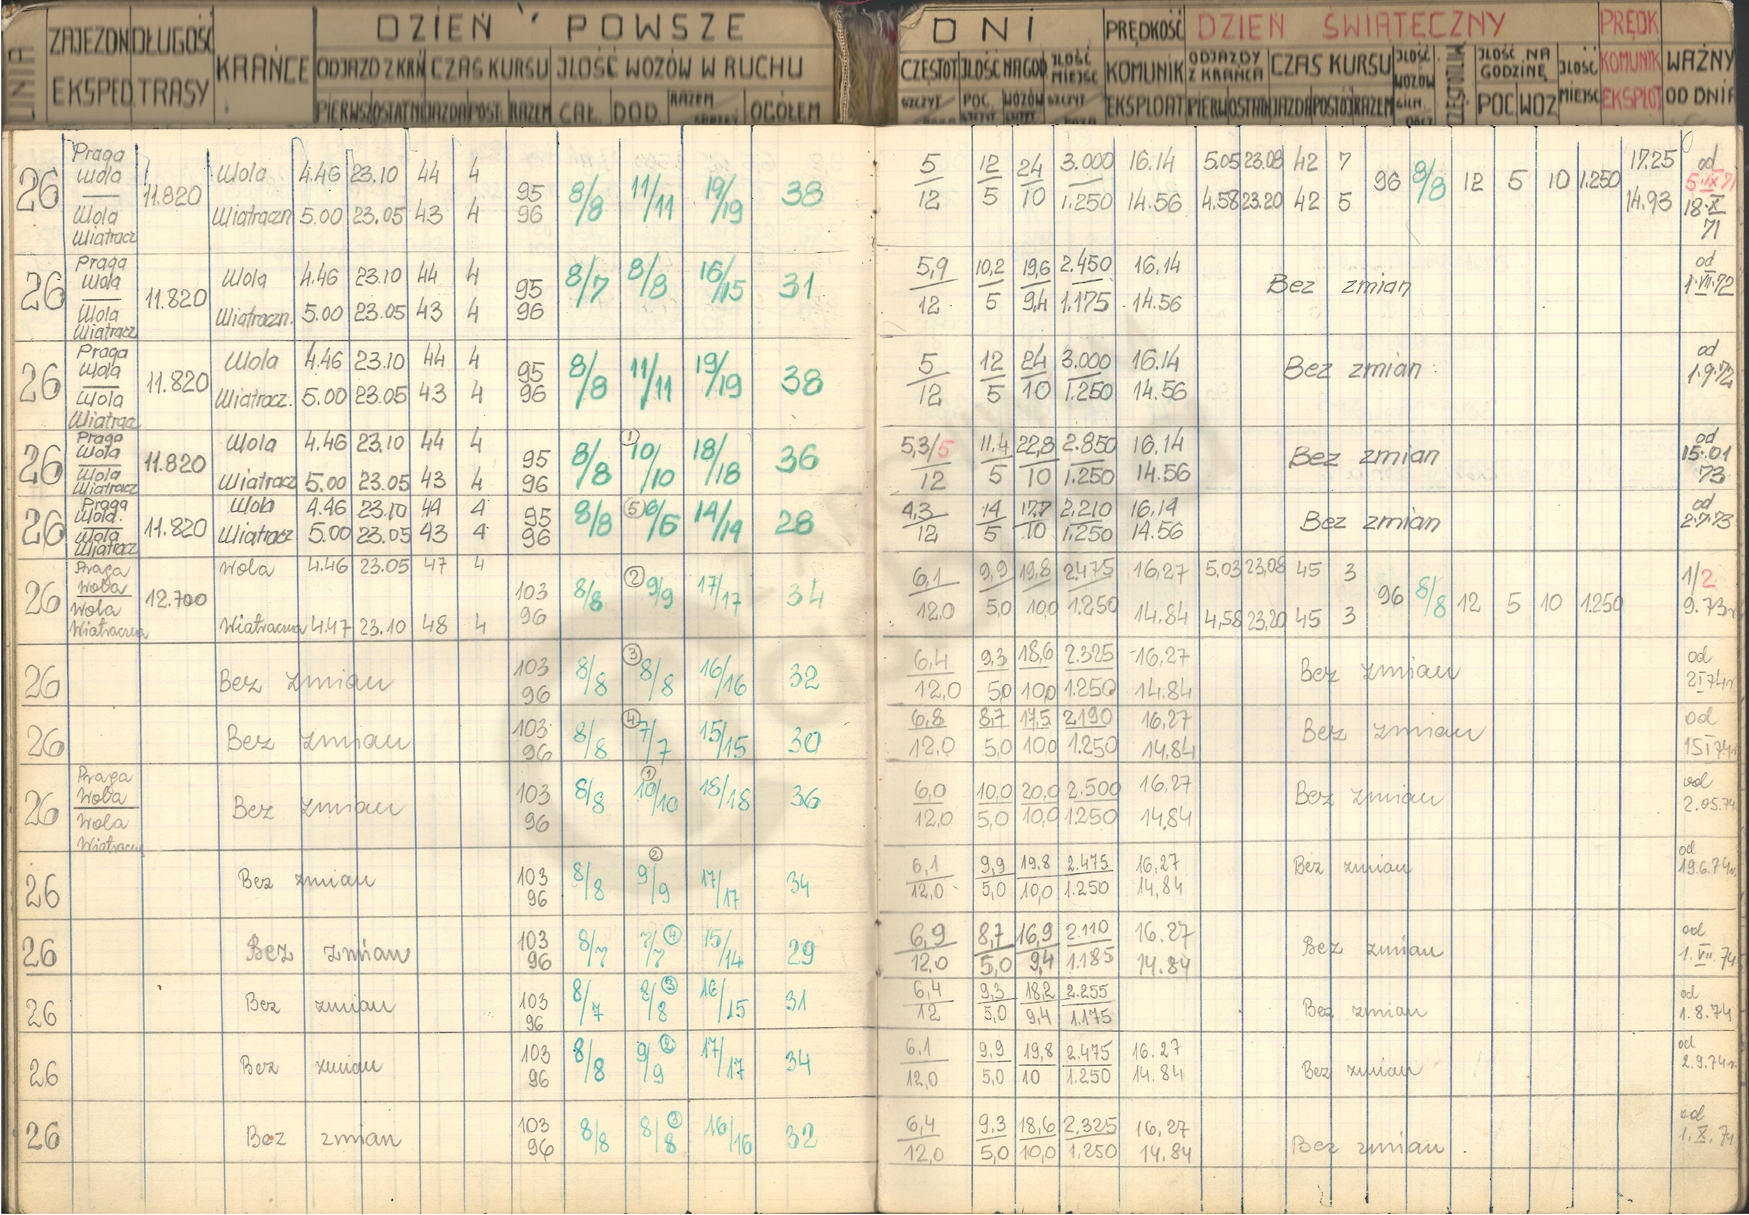 LINIA ZAJEZDN. EKSPED. DŁUGOŚĆ TRASY KRAŃCE DZIEŃ POWSZE
ODJAZD Z KRAŃ CZAS KURSU ILOŚĆ WOZÓW W RUCHU
PIERWSZ OSTATNI JAZDA POST. RAZEM CAŁ. DOD. RAZEM OGÓŁEM
DNI PRĘDKOŚĆ KOMUNIK EKSPLOAT DZIEŃ ŚWIĄTECZNY PRĘDK KOMUNIK EKSPLOT WAŻNY OD DNIA
CZĘSTOT ILOŚĆ NA GOD ILOŚĆ MIEJSC ODJAZDY Z KRAŃCA CZAS KURSU ILOŚĆ WOZÓW ILOŚĆ NA GODZINĘ ILOŚĆ MIEJSC
SZCZYT POC. WOZÓW SZCZYT PIERW OSTAD JAZDA POSTÓJ RAZEM POC WOZ
26 Praga Wola — Wola Wiatracz 11.820
Wola 4.46 23.10 44 4
Wiatraczn 5.00 23.05 43 4
95 96 8/8 11/11 19/19 38
5/12 12/5 24/10 3.000/1.250 16.14 14.56
5.05 23.08 42 7
4.58 23.20 42 5
96 8/8 12 5 10 1.250 17.25 14.93 od 5.IX 71 18.X 71
26 Praga Wola — Wola Wiatracz 11.820
Wola 4.46 23.10 44 4
Wiatraczn. 5.00 23.05 43 4
95 96 8/7 8/8 16/15 31
5,9/12 10,2/5 19,6/9,4 2.450/1.175 16.14 14.56 Bez zmian od 1.VII.72
26 Praga Wola — Wola Wiatrącz 11.820
Wola 4.46 23.10 44 4
Wiatracz. 5.00 23.05 43 4
95 96 8/8 11/11 19/19 38
5/12 12/5 24/10 3.000/1.250 16.14 14.56 Bez zmian od 1.9.72
26 Praga Wola — Wola Wiatracz 11.820
Wola 4.46 23.10 44 4
Wiatracz 5.00 23.05 43 4
95 96 8/8 ① 10/10 18/18 36
5,3/5/12 11.4/5 22,8/10 2.850/1.250 16.14 14.56 Bez zmian od 15.01 73
26 Praga Wola. — Wola Wiatracz 11.820
Wola 4.46 23.10 44 4
Wiatracz 5.00 23.05 43 4
95 96 8/8 ⑤ 6/6 14/14 28
4,3/12 14/5 17,7/10 2.210/1.250 16.14 14.56 Bez zmian od 2.7.73
26 Praga Wola — Wola Wiatraczna 12.700
Wola 4.46 23.05 47 4
Wiatraczna 4.47 23.10 48 4
103 96 8/8 ② 9/9 17/17 34
6,1/12,0 9,9/5,0 19,8/10,0 2.475/1.250 16,27 14,84
5,03 23,08 45 3
4,58 23,20 45 3
96 8/8 12 5 10 1250 1/2 9.73r
26 Bez zmian 103 96 8/8 ③ 8/8 16/16 32
6,4/12,0 9,3/5,0 18,6/10,0 2.325/1.250 16,27 14.84 Bez zmian od 2I74r
26 Bez zmian 103 96 8/8 ④ 7/7 15/15 30
6,8/12,0 8,7/5,0 17,5/10,0 2.190/1.250 16,27 14,84 Bez zmian od 15I74r
26 Praga Wola — Wola Wiatraczn Bez zmian 103 96 8/8 ① 10/10 18/18 36
6,0/12,0 10,0/5,0 20,0/10,0 2.500/1.250 16,27 14,84 Bez zmian od 2.05.74
26 Bez zmian 103 96 8/8 ② 9/9 17/17 34
6,1/12,0 9,9/5,0 19.8/10,0 2.475/1.250 16,27 14,84 Bez zmian od 19.6.74r.
26 Bez zmian 103 96 8/7 7/7 ④ 15/14 29
6,9/12,0 8,7/5,0 16,9/9,4 2.110/1.185 16.27 14.84 Bez zmian od 1.VII.74
26 Bez zmian 103 96 8/7 8/8 ③ 16/15 31
6,4/12 9,3/5,0 18,2/9,4 2.255/1.175 Bez zmian od 1.8.74
26 Bez zmian 103 96 8/8 9/9 ② 17/17 34
6,1/12,0 9,9/5,0 19,8/10 2.475/1.250 16.27 14.84 Bez zmian od 2.9.74r.
26 Bez zmian 103 96 8/8 8/8 ③ 16/16 32
6,4/12,0 9,3/5,0 18,6/10,0 2.325/1.250 16,27 14,84 Bez zmian od 1.X.74